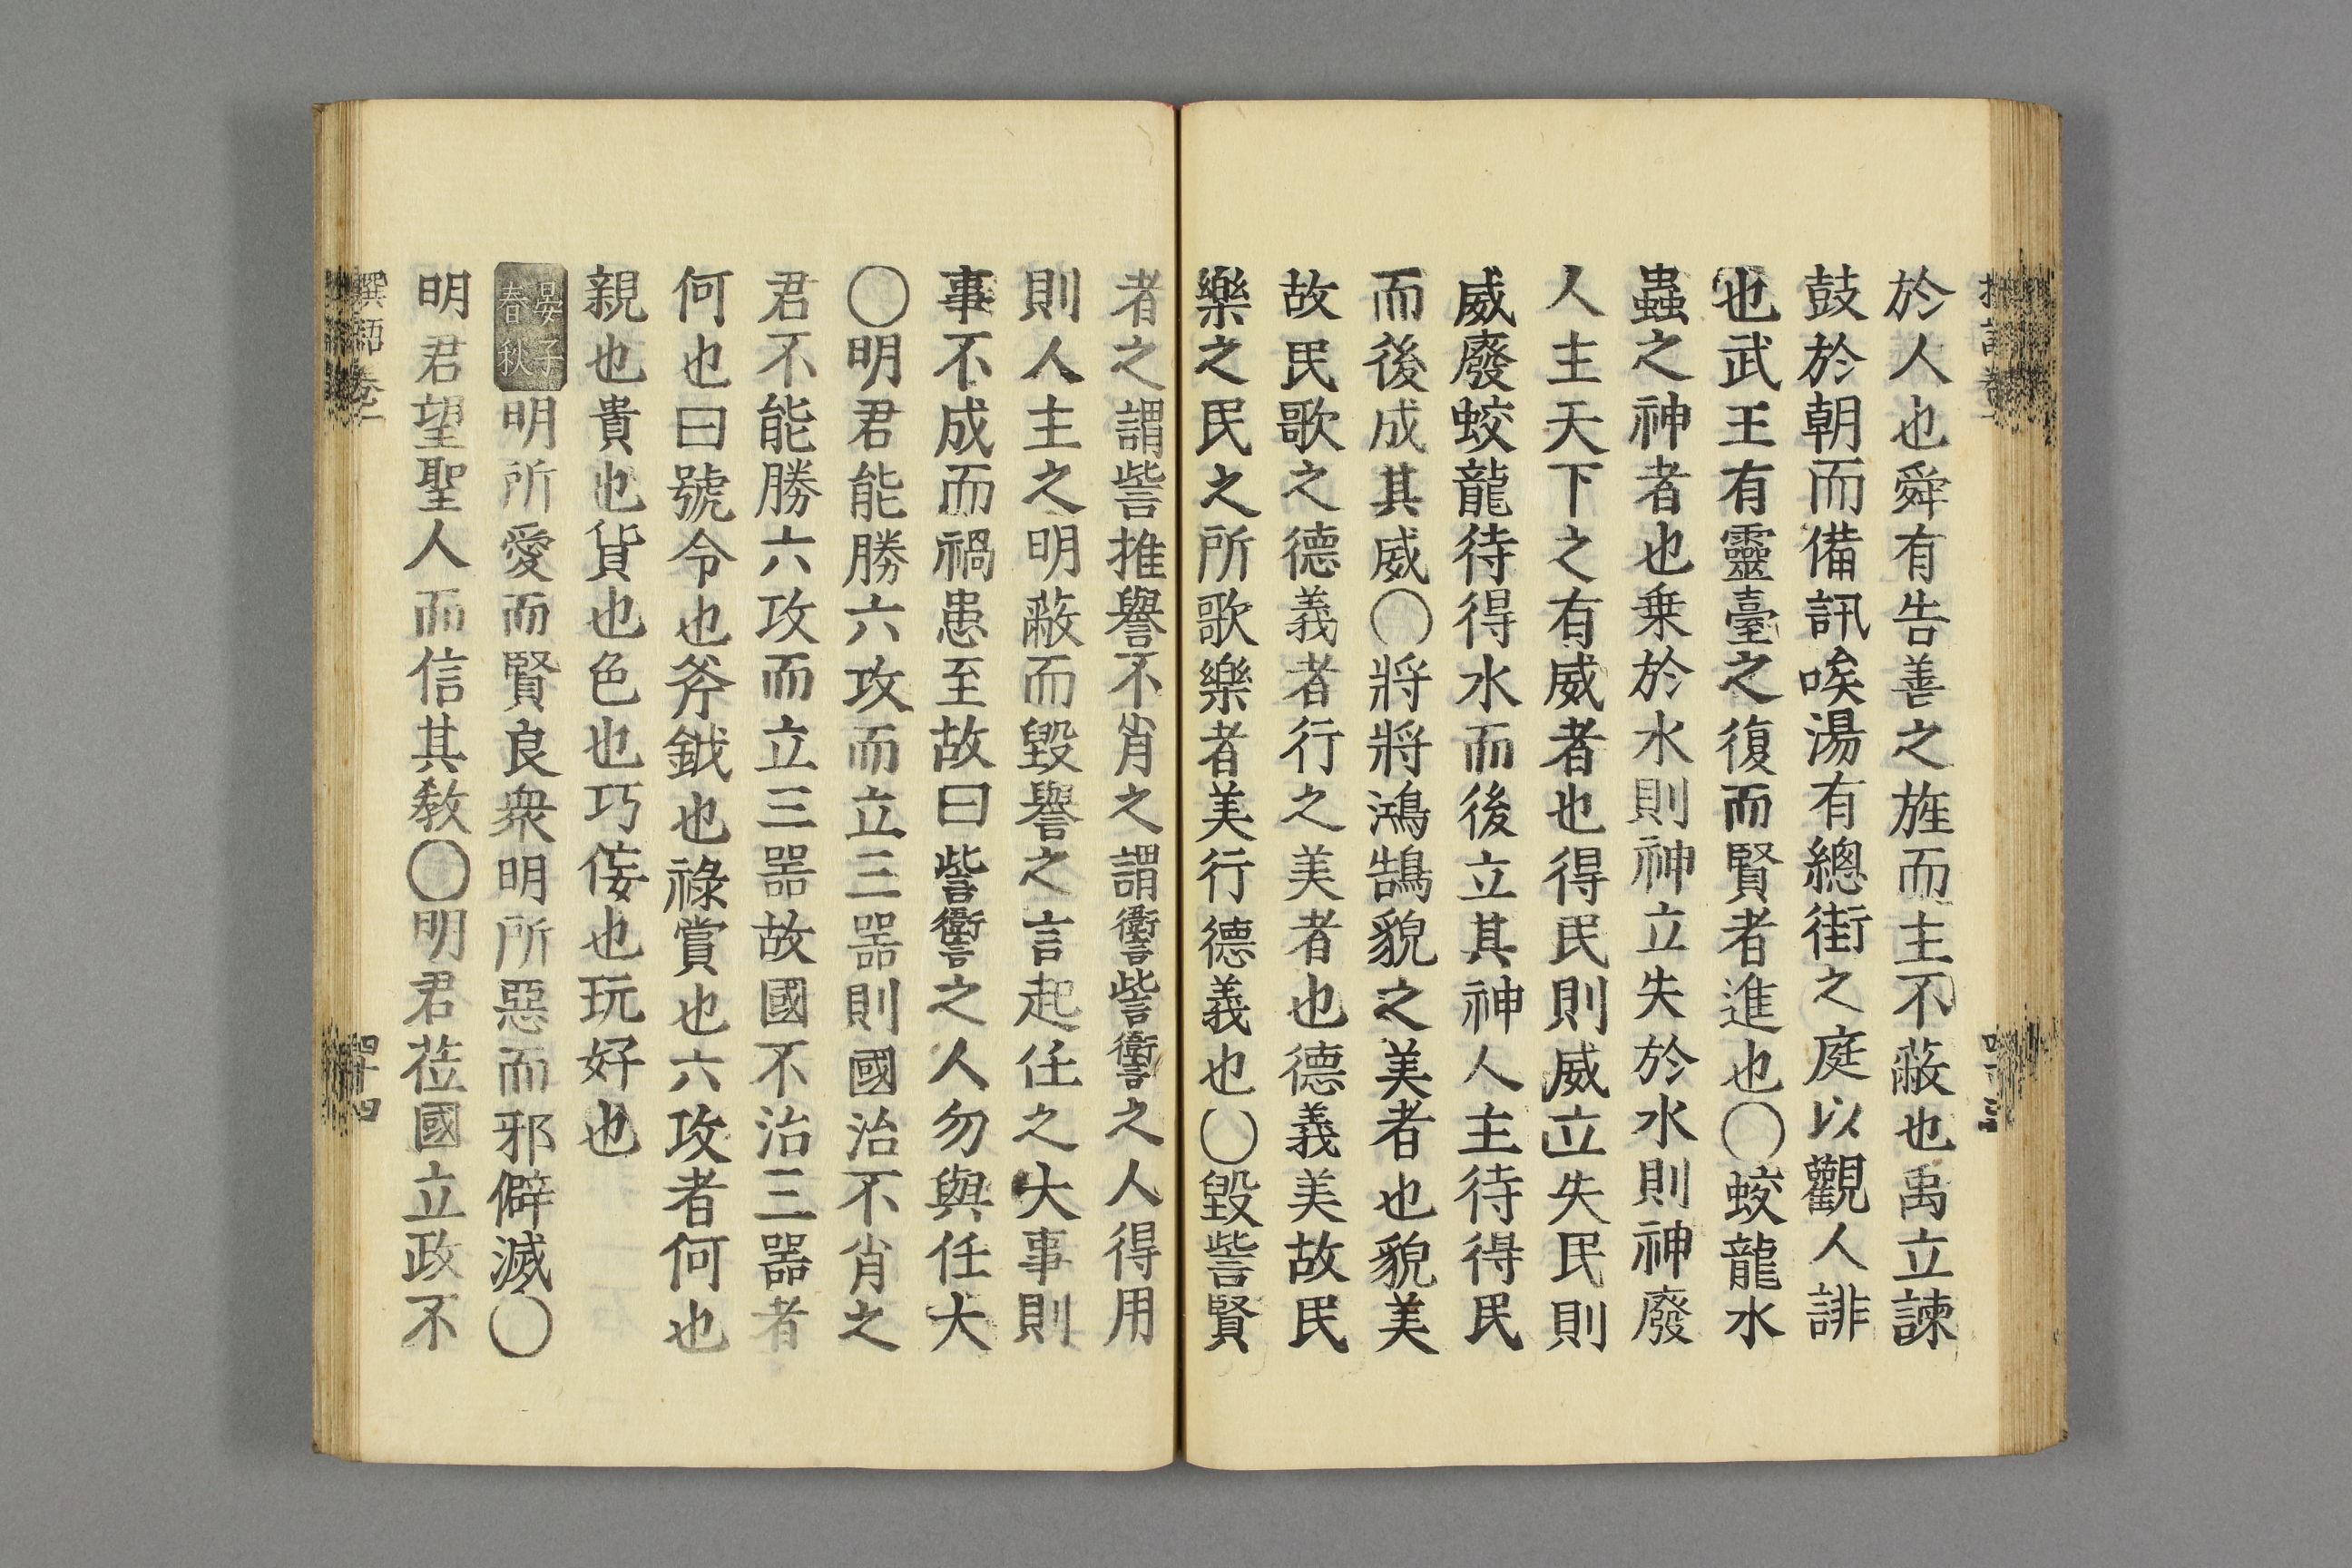 於人也舜有告善之旌而主不蔽也禹立諫
鼓於朝而備訊唉湯有總街之庭以觀人誹
也武王有靈臺之復而賢者進也〇蛟龍水
蟲之神者也乗於水則神立失於水則神廢
人主天下之有威者也得民則威立失民則
威廢蛟龍待得水而後立其神人主待得民
而後成其威〇將將鴻鵠貌之美者也貌美
故民歌之德義者行之美者也德義美故民
樂之民之所歌樂者美行德義也〇毀訾賢
者之謂訾推譽不肖之謂讏訾讏之人得用
則人主之明蔽而毀譽之言起任之大事則
事不成而禍患至故曰訾讏之人勿與任大
〇明君能勝六攻而立三噐則國治不肖之
君不能勝六攻而立三噐故國不治三噐者
何也曰號令也斧鉞也祿賞也六攻者何也
親也貴也貨也色也巧侫也玩好也
晏子春秋明所愛而賢良衆明所惡而邪僻滅〇
明君望聖人而信其教〇明君莅國立政不
撰語卷二
四十四